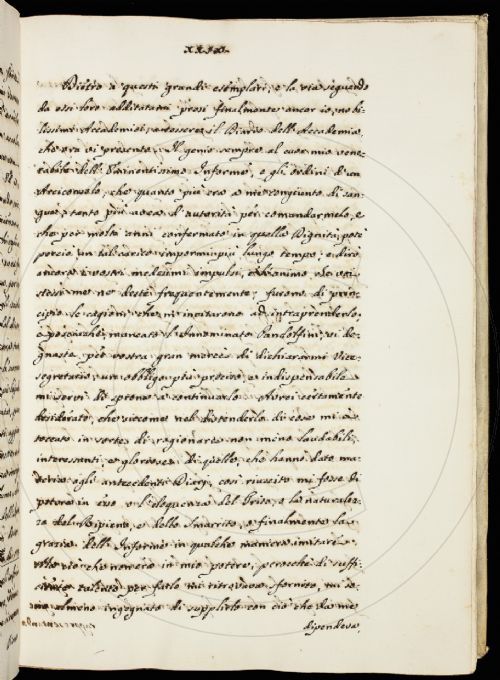 XXIX.
Dietro a questi grandi esemplari, e la via seguendo
da essi loro additatami presi finalmente ancor io, nobi-
lissimi Accademici, a tessere il Diario dell'Accademia,
che ora vi presento. Il genio sempre al cuor mio vene-
rabile dell'Eminentissimo Informe, e gli ordini d'un
Arciconsolo, che quanto più era a me congiunto di san-
gue, tanto più avea d'autorità per comandarmelo, e
che per molti anni confermato in quella Dignità, potè
perciò un tal carico impormi più lungo tempo, e dirò
ancora i vostri medesimi impulsi, che voi
stessi me ne deste frequentemente, furono di prin-
cipio le cagioni che m'incitarono ad intraprenderlo;
e poscia che, mancato il denominato Pandolfini, vi de-
gnaste per vostra gran mercè di dichiararmi Vice-
segretario, un obbligo più preciso, e indispensabile
mi servì di sprone a continuarlo. Avrei certamente
desiderato, che siccome nel distenderlo di cose mi è
toccato in sorte di ragionare non meno laudabili,
interessanti, e gloriose di quelle, che hanno dato ma-
teria agli antecedenti Diarj, così riuscito mi fosse di
potere in esso e l'eloquenza del Trito, e la naturalez-
za del Ripieno, e dello Smarrito, e finalmente la
grazia dell'Informe in qualche maniera imitare.
ciò che non era in mio potere, perocchè di suffi-
ciente talento per farlo mi ritrovava fornito, mi so-
no almeno ingegnato di supplirlo con ciò che da me
dipendeva,